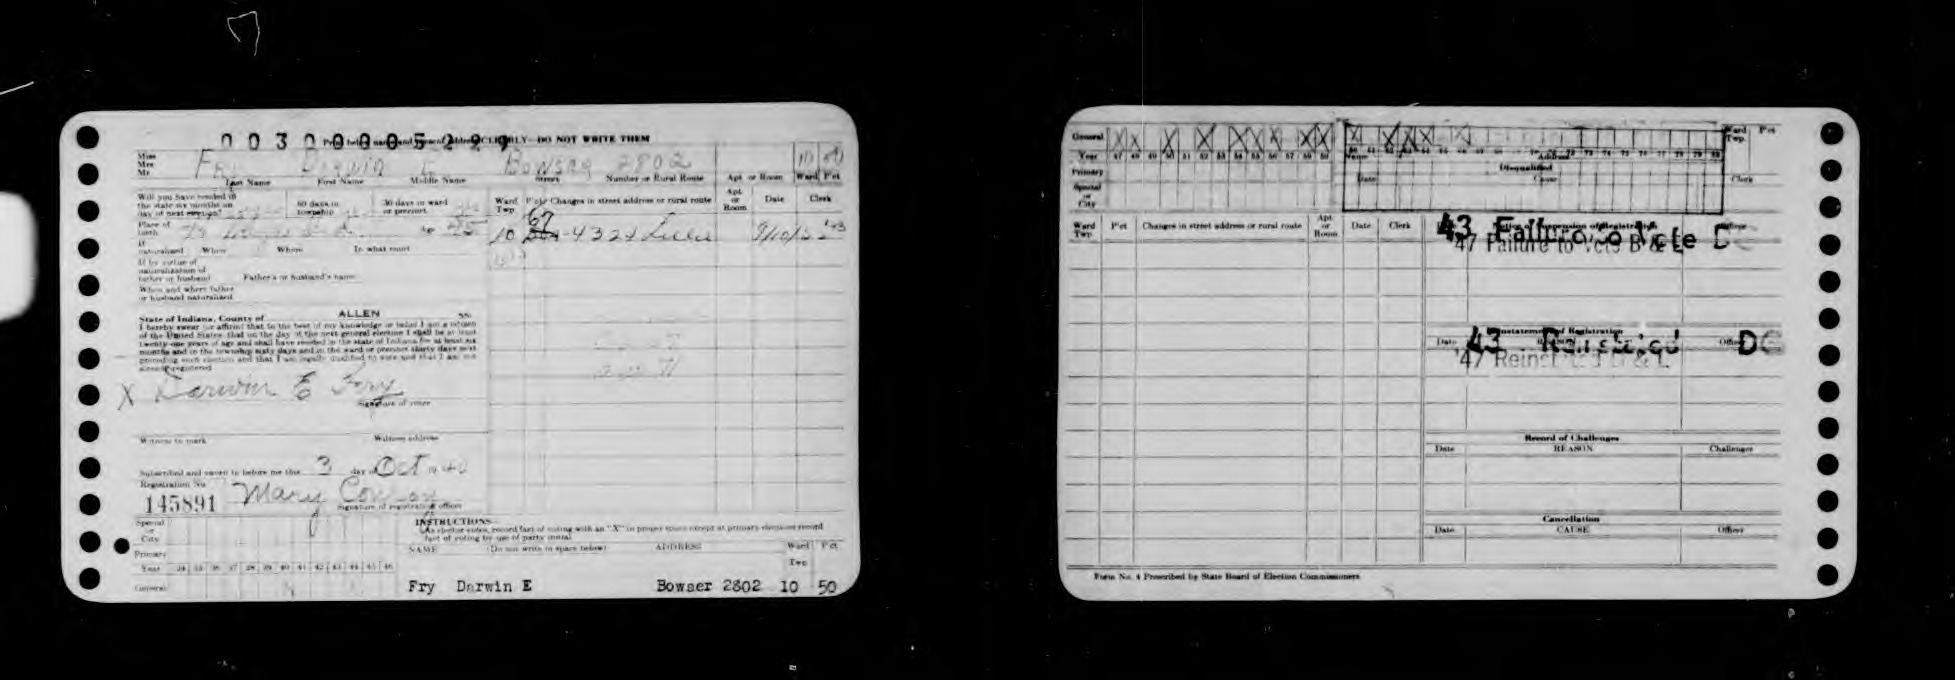 003000052
Print below name and address CLEARLY—DO NOT WRITE THEM
Miss
Mrs.
Mr.
Fry Darwin E Bowser 2802 10 50
Last Name First Name Middle Name Street Number or Rural Route Apt. or Room Ward P'ct
Will you have resided in the state six months on day of next election?
60 days in township
30 days in ward or precinct
Ward Twp. P'ct Changes in street address or rural route Apt. or Room Date Clerk
Place of birth
Age
67
10 4324
If naturalized When Where In what court
If by virtue of naturalization of father or husband Father's or husband's name
When and where father or husband naturalized
State of Indiana, County of ALLEN SS:
I hereby swear (or affirm) that to the best of my knowledge or belief I am a citizen
of the United States; that on the day of the next general election I shall be at least
twenty-one years of age and shall have resided in the state of Indiana for at least six
months and in the township sixty days and in the ward or precinct thirty days next
preceding such election and that I am legally qualified to vote and that I am not
already registered
X Darwin E Fry
Signature of voter
Witness to mark Witness address
Subscribed and sworn to before me this 3 day of Oct 1940
Registration No.
145891 Mary
Signature of registration officer
Special or City
Primary
Year 34 35 36 37 38 39 40 41 42 43 44 45 46
General
INSTRUCTIONS
As elector votes, record fact of voting with an "X" in proper space except at primary elections record
fact of voting by use of party initial
NAME (Do not write in space below) ADDRESS Ward Twp. P'ct
Fry Darwin E Bowser 2802 10 50
General
Year 47 48 49 50 51 52 53 54 55 56 57 58 59
Primary
Special or City
Name Address
Disqualified
Date Cause Clerk
Ward Twp. P'ct
Ward Twp. P'ct Changes in street address or rural route Apt. or Room Date Clerk
Notice of Suspension of Registration
43 Failure to Vote
'47 Failure to Vote B & E
Reinstatement of Registration
Date REASON Officer
43 Reinstated
'47 Reinstated B & E
Record of Challenges
Date REASON Challenger
Cancellation
Date CAUSE Officer
Form No. 4 Prescribed by State Board of Election Commissioners